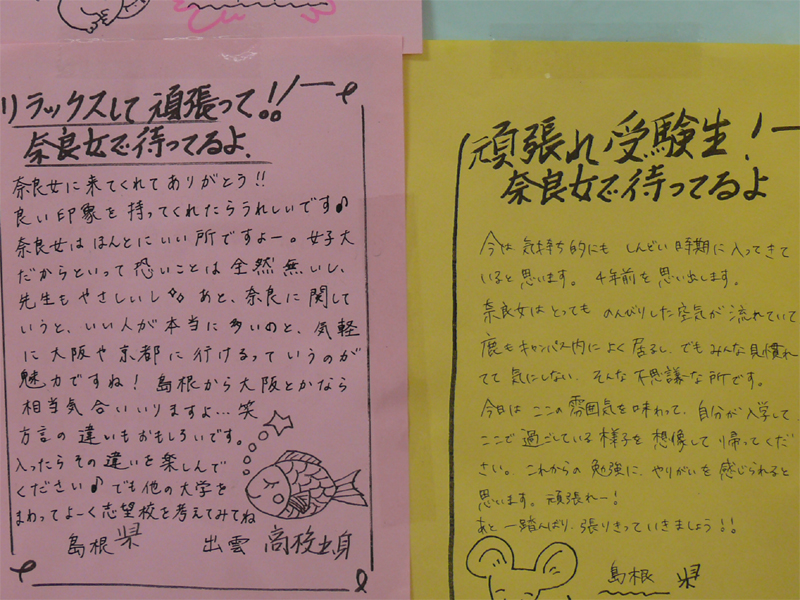 リラックスして頑張って!!
奈良女で待ってるよ.
奈良女に来てくれてありがとう!!
良い印象を持ってくれたらうれしいです♪
奈良女はほんとにいい所ですよー。女子大
だからといって恐いことは全然無いし、
先生もやさしいし あと、奈良に関して
いうと、いい人が本当に多いのと、気軽
に大阪や京都に行けるっていうのが
魅力ですね! 島根から大阪とかなら
相当気合いいりますよ…笑
方言の違いもおもしろいです。
入ったらその違いを楽しんで
ください♪ でも他の大学を
まわってよーく志望校を考えてみてね
島根県 出雲高校出身
頑張れ受験生!
奈良女で待ってるよ
今は気持ち的にもしんどい時期に入ってきて
いると思います。4年前を思い出します。
奈良女はとってものんびりした空気が流れていて
鹿もキャンパス内によく居るし、でもみんな見慣れ
てて気にしない、そんな不思議な所です。
今日はここの雰囲気を味わって、自分が入学して
ここで過ごしている様子を想像して帰ってくだ
さい。これからの勉強に、やりがいを感じられると
思います。頑張れー!
あと一踏んばり、張りきっていきましょう!!
島根県